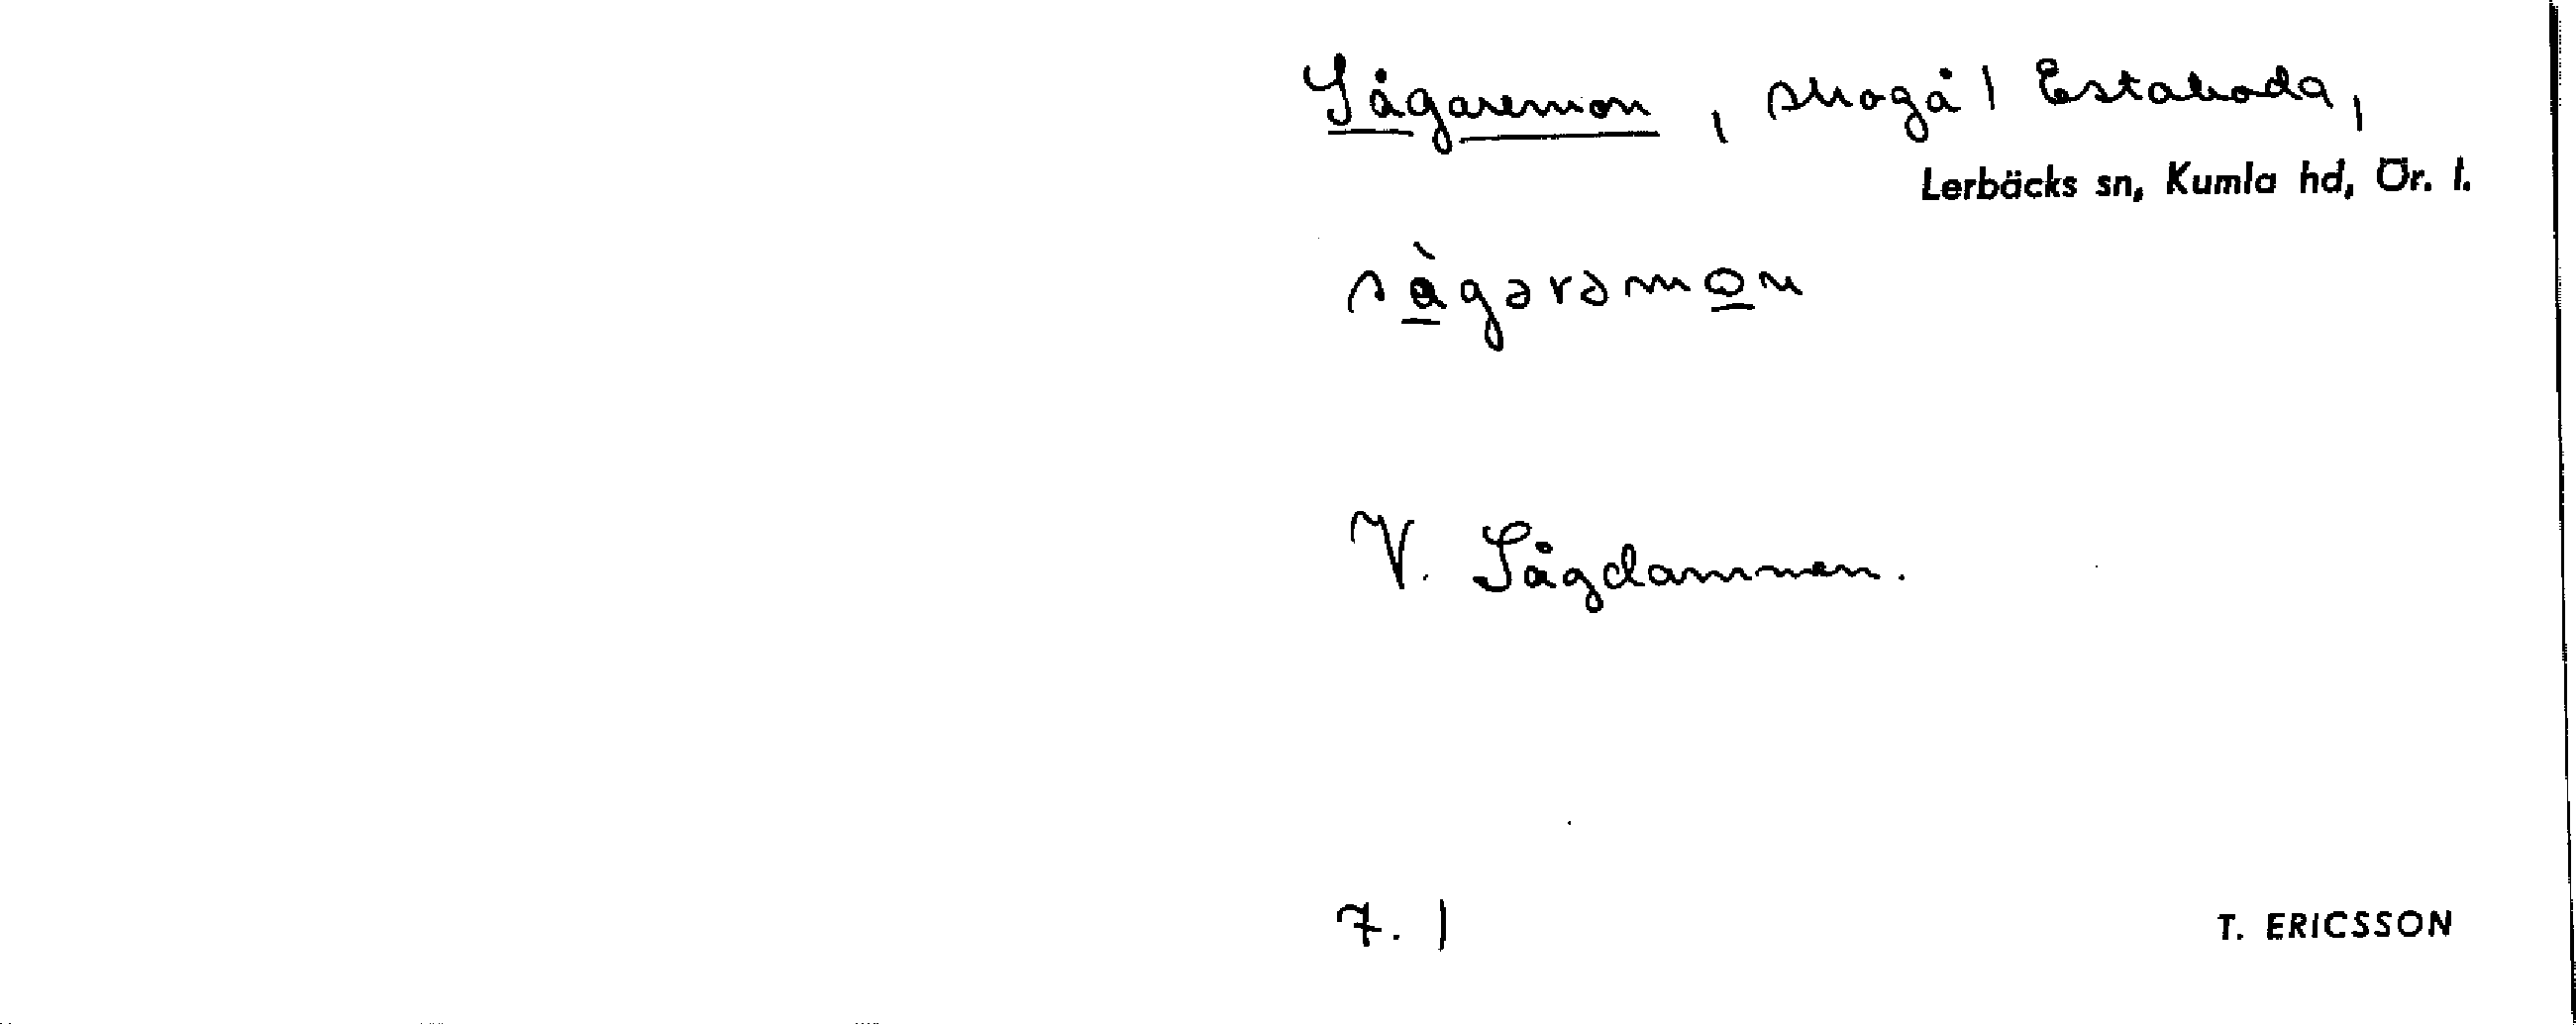 Sågaremon, skogå | Estaboda,
Lerbäcks sn, Kumla hd, Ör. l.
sågərəmon
V. Sågdammen.
7. |
T. ERICSSON